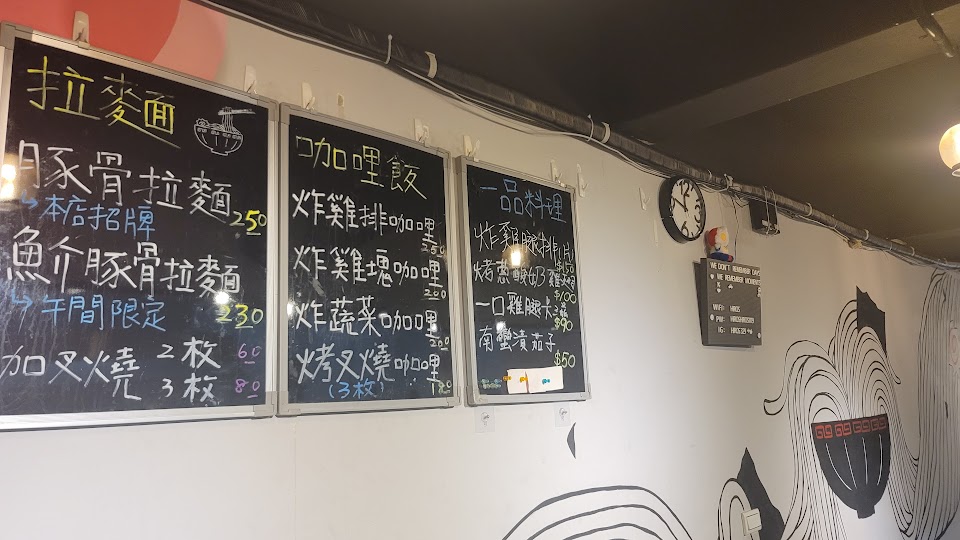 拉麵
豚骨拉麵
↳本店招牌 250
魚介豚骨拉麵
↳午間限定 230
加叉燒 2枚 60
3枚 80
咖哩飯
炸雞排咖哩
250
炸雞塊咖哩
200
炸蔬菜咖哩
200
烤叉燒咖哩
(3枚) 180
一品料理
$100
一口雞豚卡
$90
南蠻漬茄子
$50
WE DON'T REMEMBER DAYS
WE REMEMBER MOMENTS
WIFI:
PW:
IG: